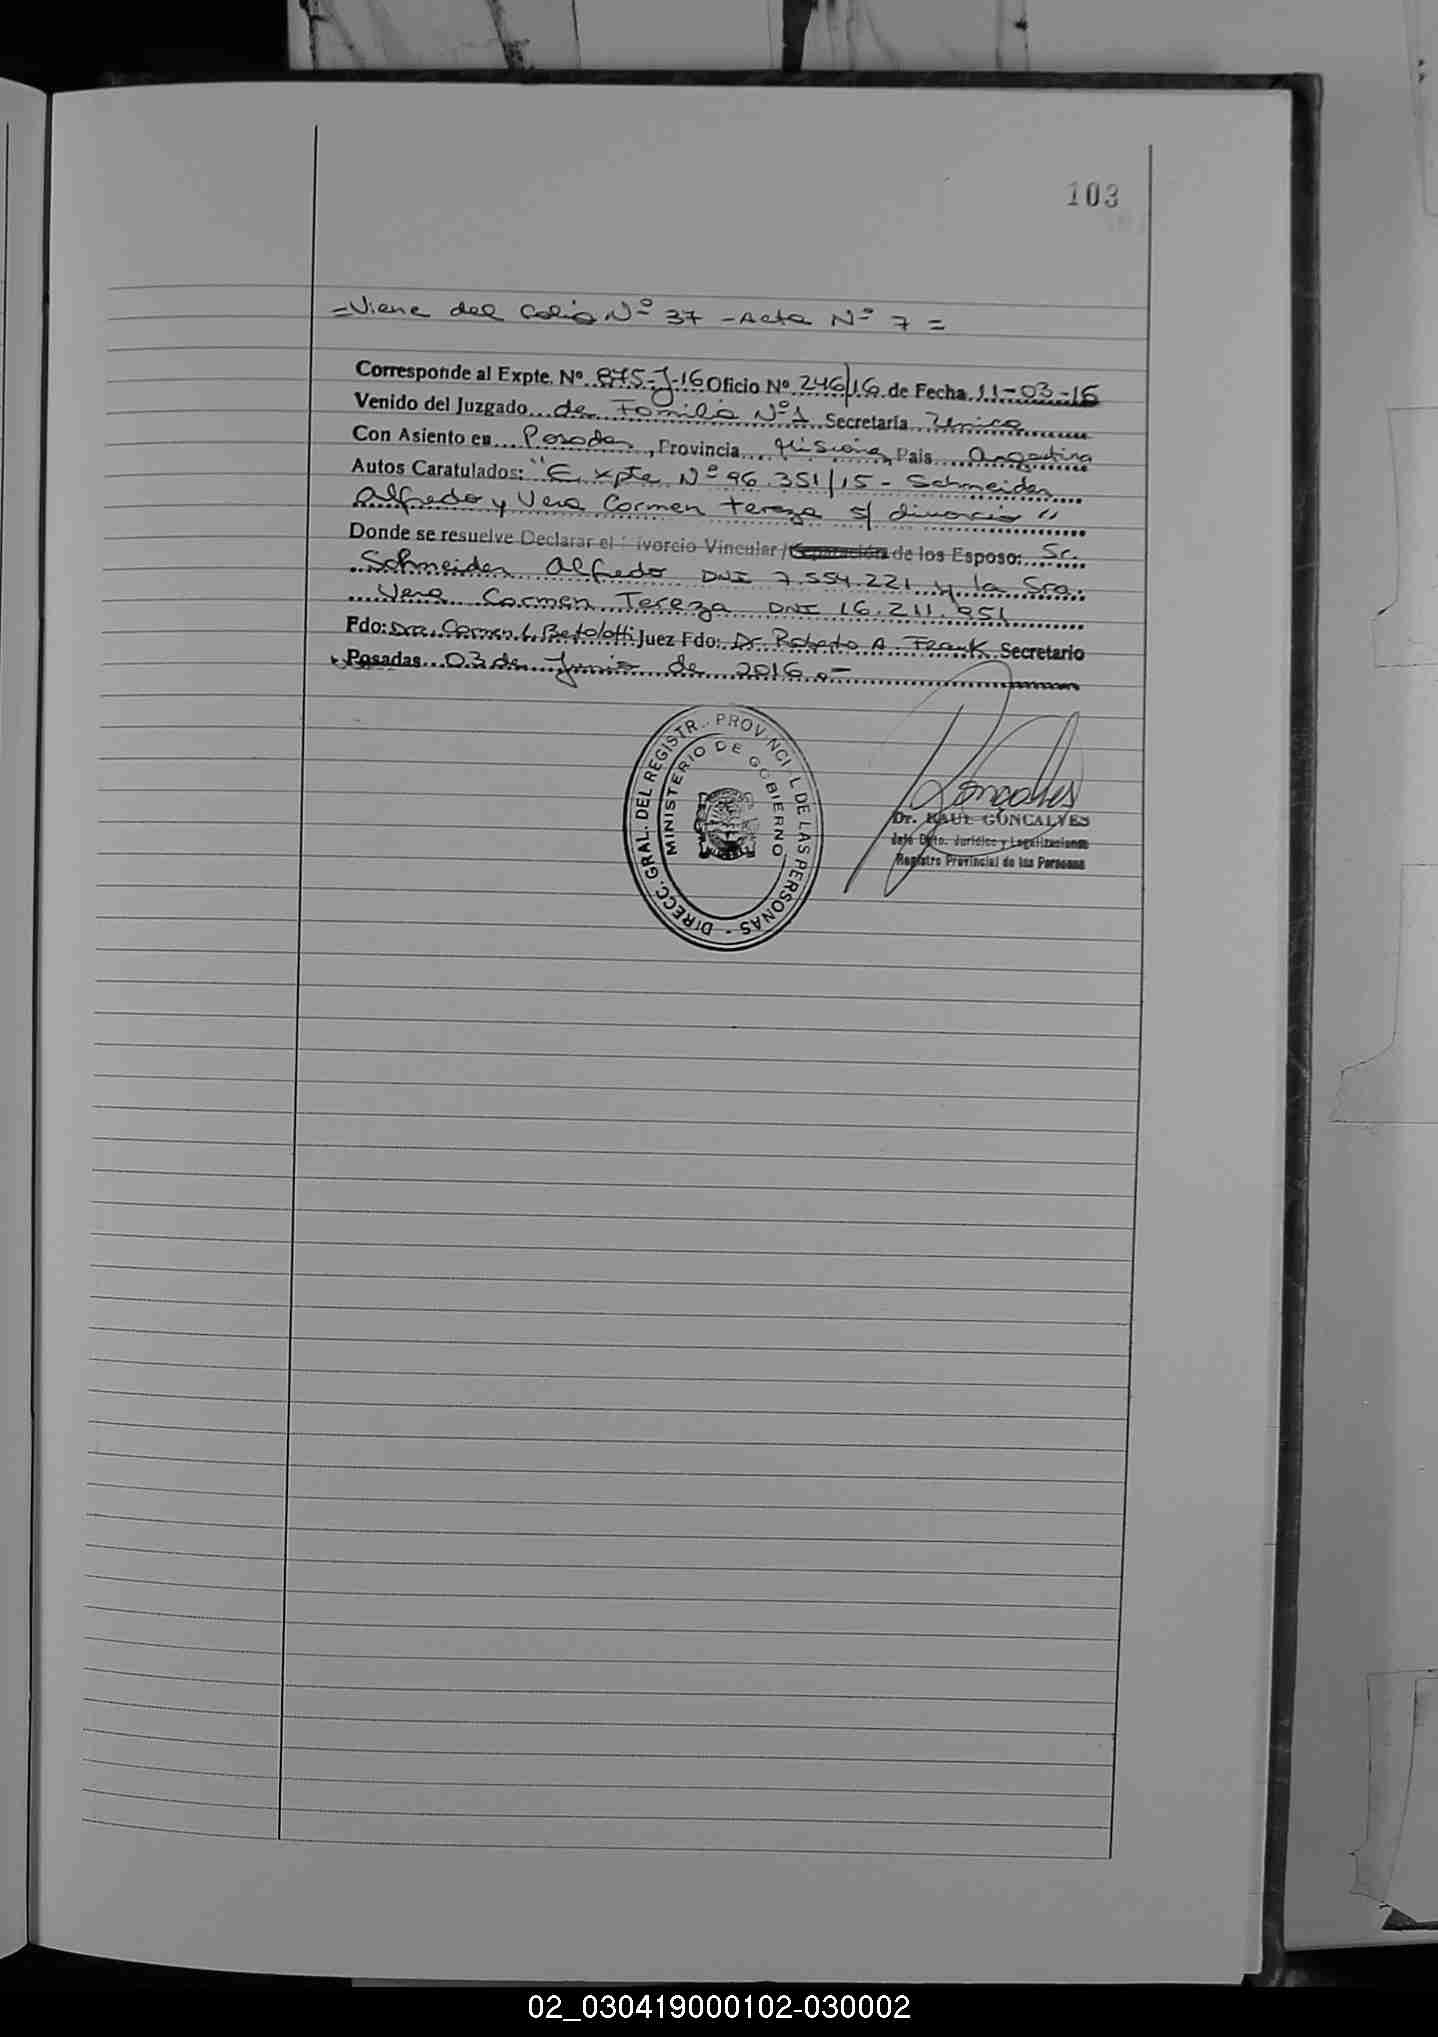 103
=Viene del Folio Nº 37 - Acta Nº 7 =
Corresponde al Expte. Nº 875-J-16 Oficio Nº 246/16 de Fecha 11-03-16
Venido del Juzgado de Familia Nº1 Secretaría Unica
Con Asiento en Posadas, Provincia Misiones, Pais Argentina
Autos Caratulados: "Expte Nº 96.351/15 - Schneider
Alfredo y Vera Carmen Tereza s/ divorcio"
Donde se resuelve Declarar el Divorcio Vincular / Separación de los Esposo: Sr.
Schneider Alfredo DNI 7.554.221 y la Sra.
Vera Carmen Tereza DNI 16.211.951
Fdo: Dra. Carmen L. Bertolotti Juez Fdo: Dr. Roberto A. Frank Secretario
Posadas 03 de Junio de 2016.-
DIRECC. GRAL. DEL REGISTR. PROVINCIAL DE LAS PERSONAS -
MINISTERIO DE GOBIERNO
Goncalves
Dr. RAUL GONCALVES
Jefe Dpto. Jurídico y Legalizaciones
Registro Provincial de las Personas
02_030419000102-030002